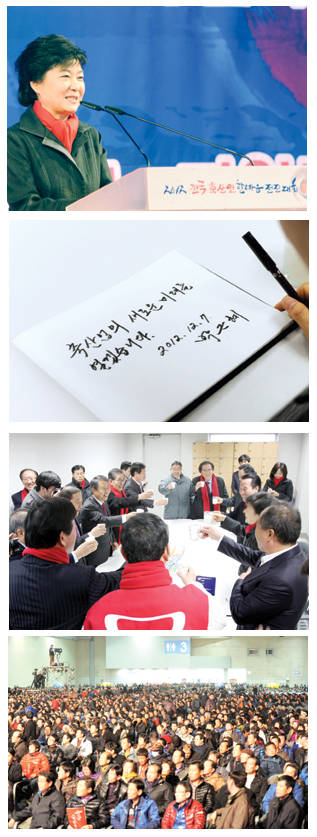 2012 전국 축산인 한마음 전진대회
축산업의 새로운 미래를
열겠습니다.
2012. 12. 7
박근혜
3